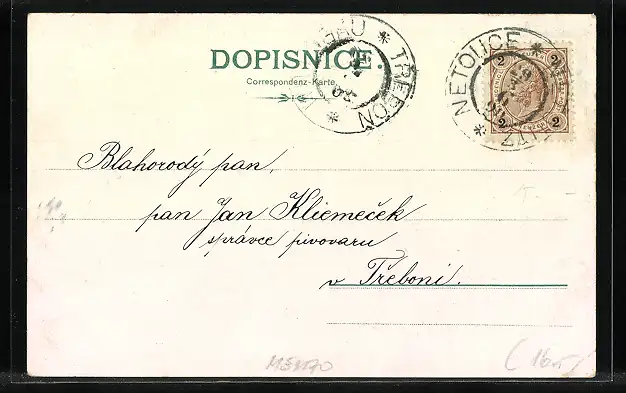 DOPISNICE.
Correspondenz-Karte.
* TŘEBOŇ *
NETOLICE *
2 2
2 2
Blahorodý pan,
pan Jan Kliemeček
správce pivovaru
v Třeboni.